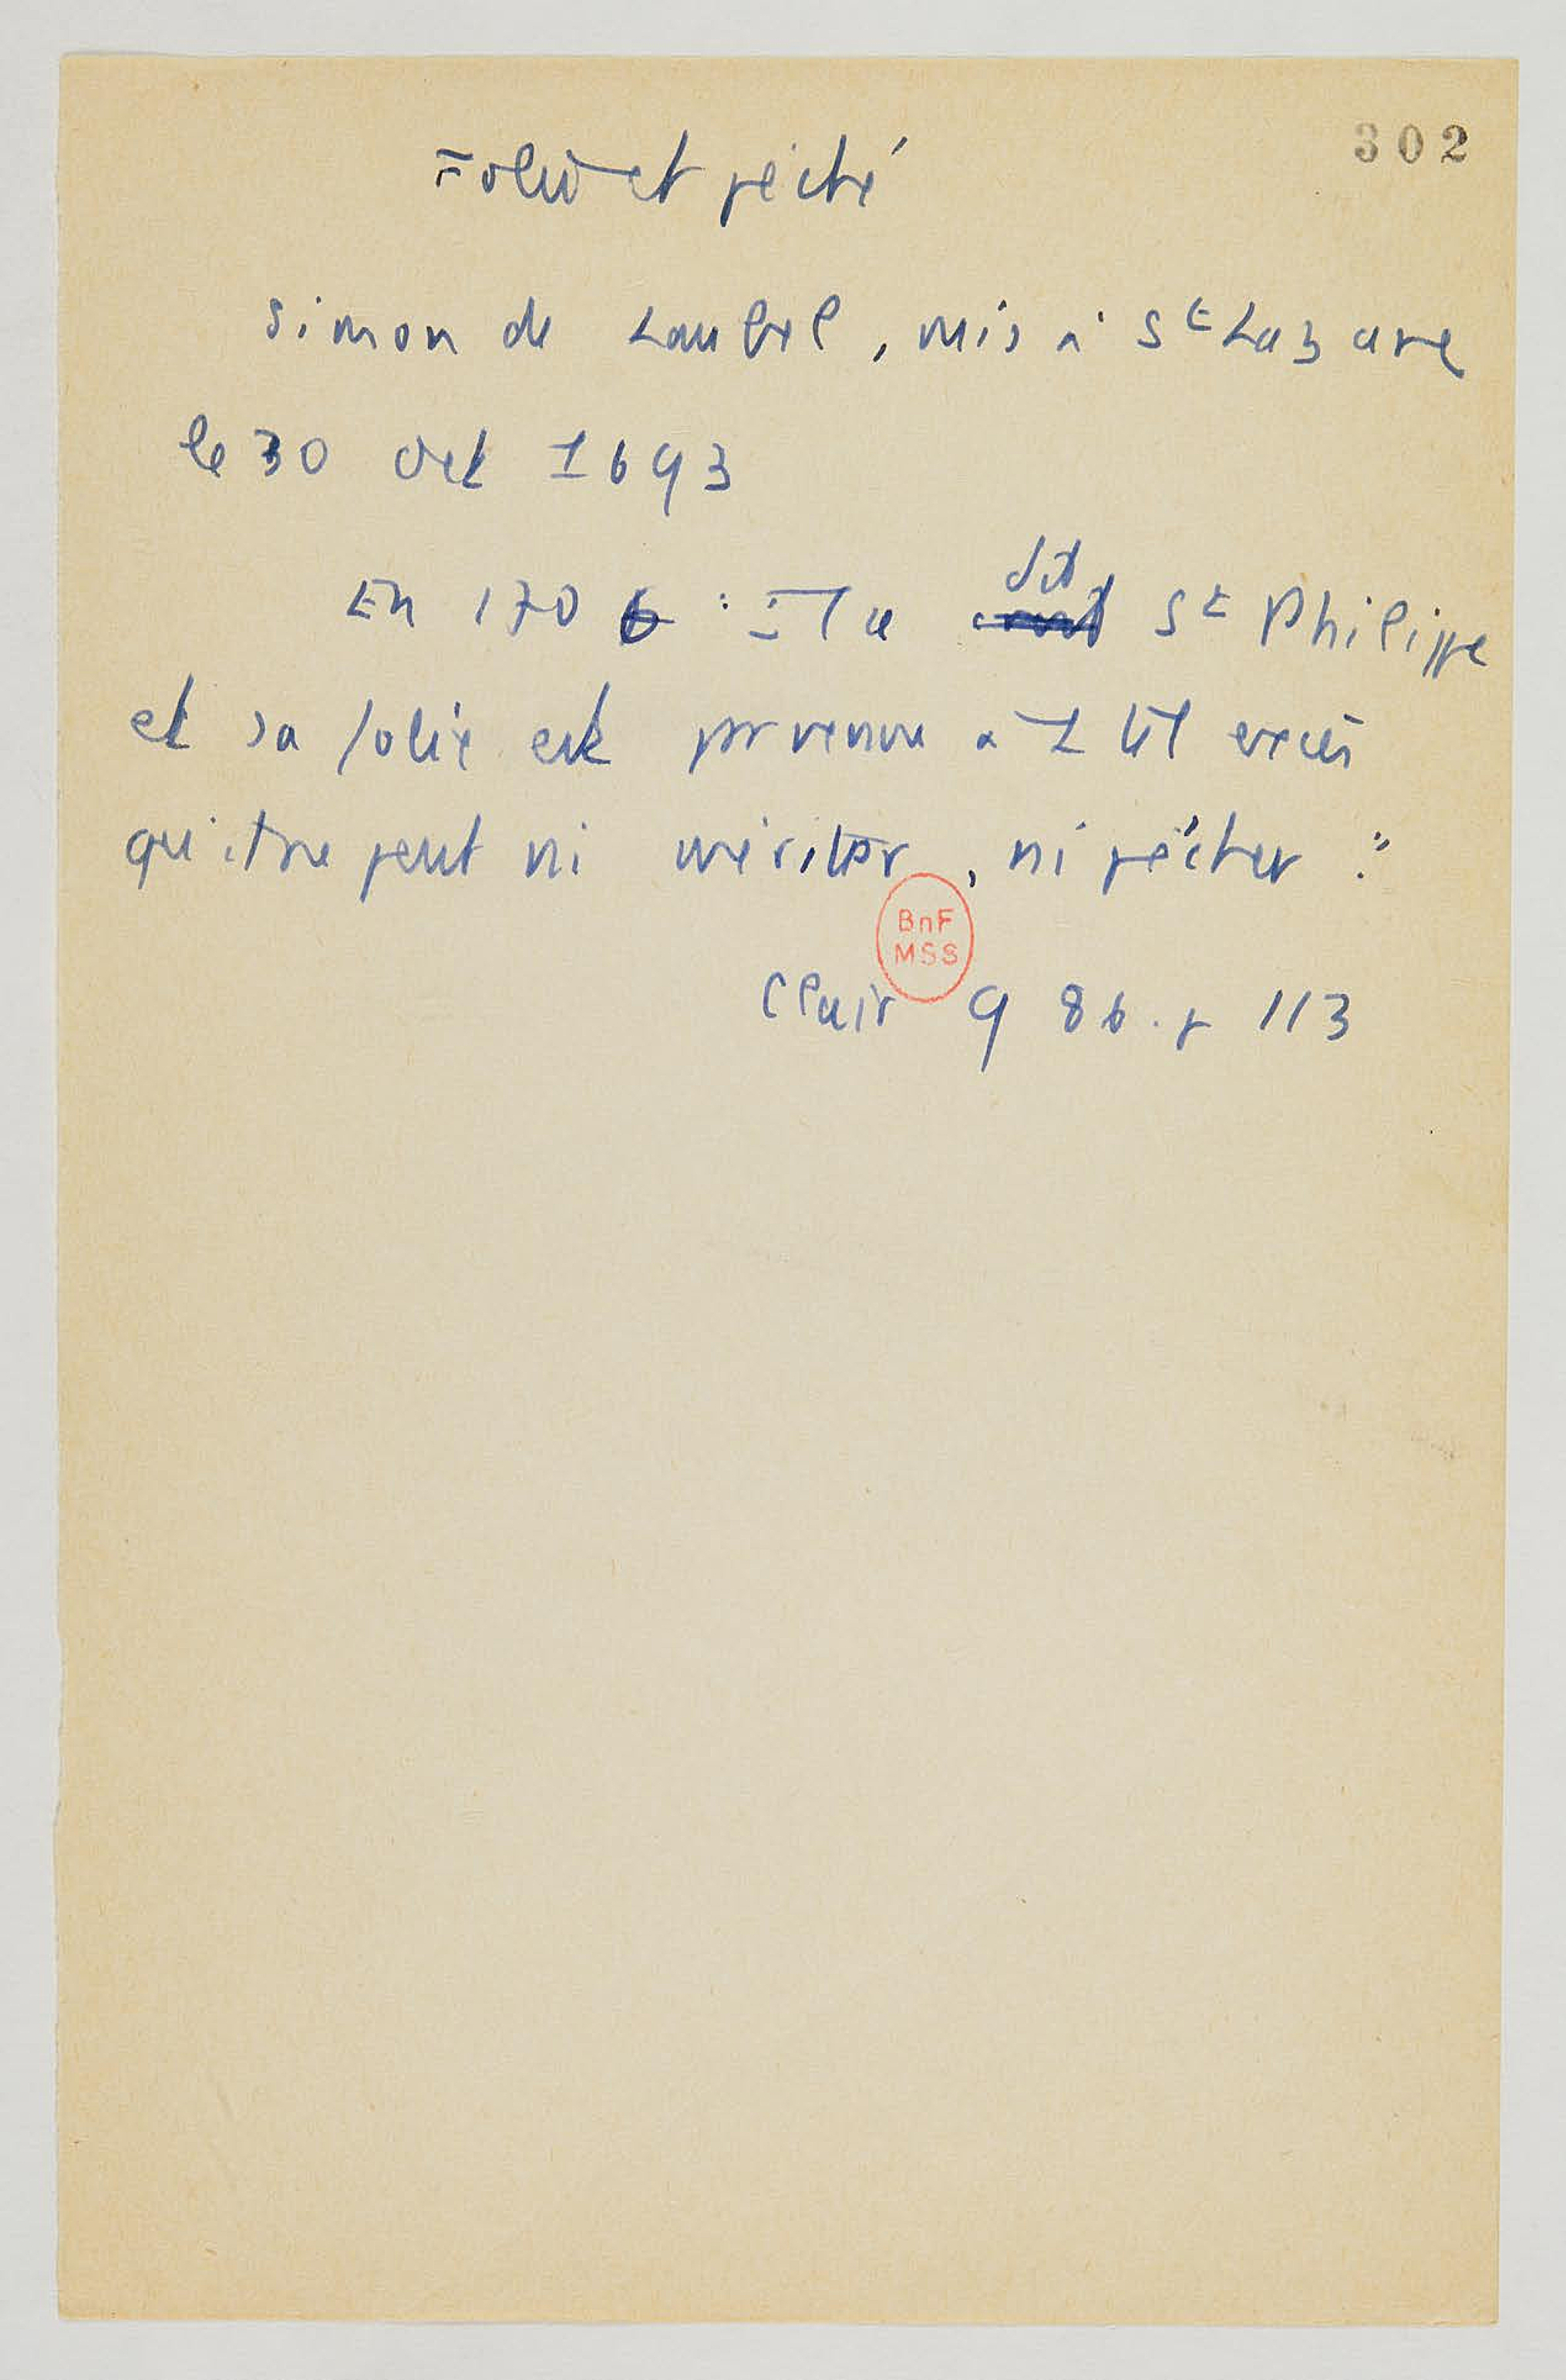 302
Folie et péché
Simon de Laubel, mis à St Lazare
le 30 Oct 1693
En 1706 : Il a dit St Philippe
et sa folie est parvenue à 1 tel excès
qu'il ne peut ni mériter, ni pécher :
BnF
MSS
Clair 986. p 113